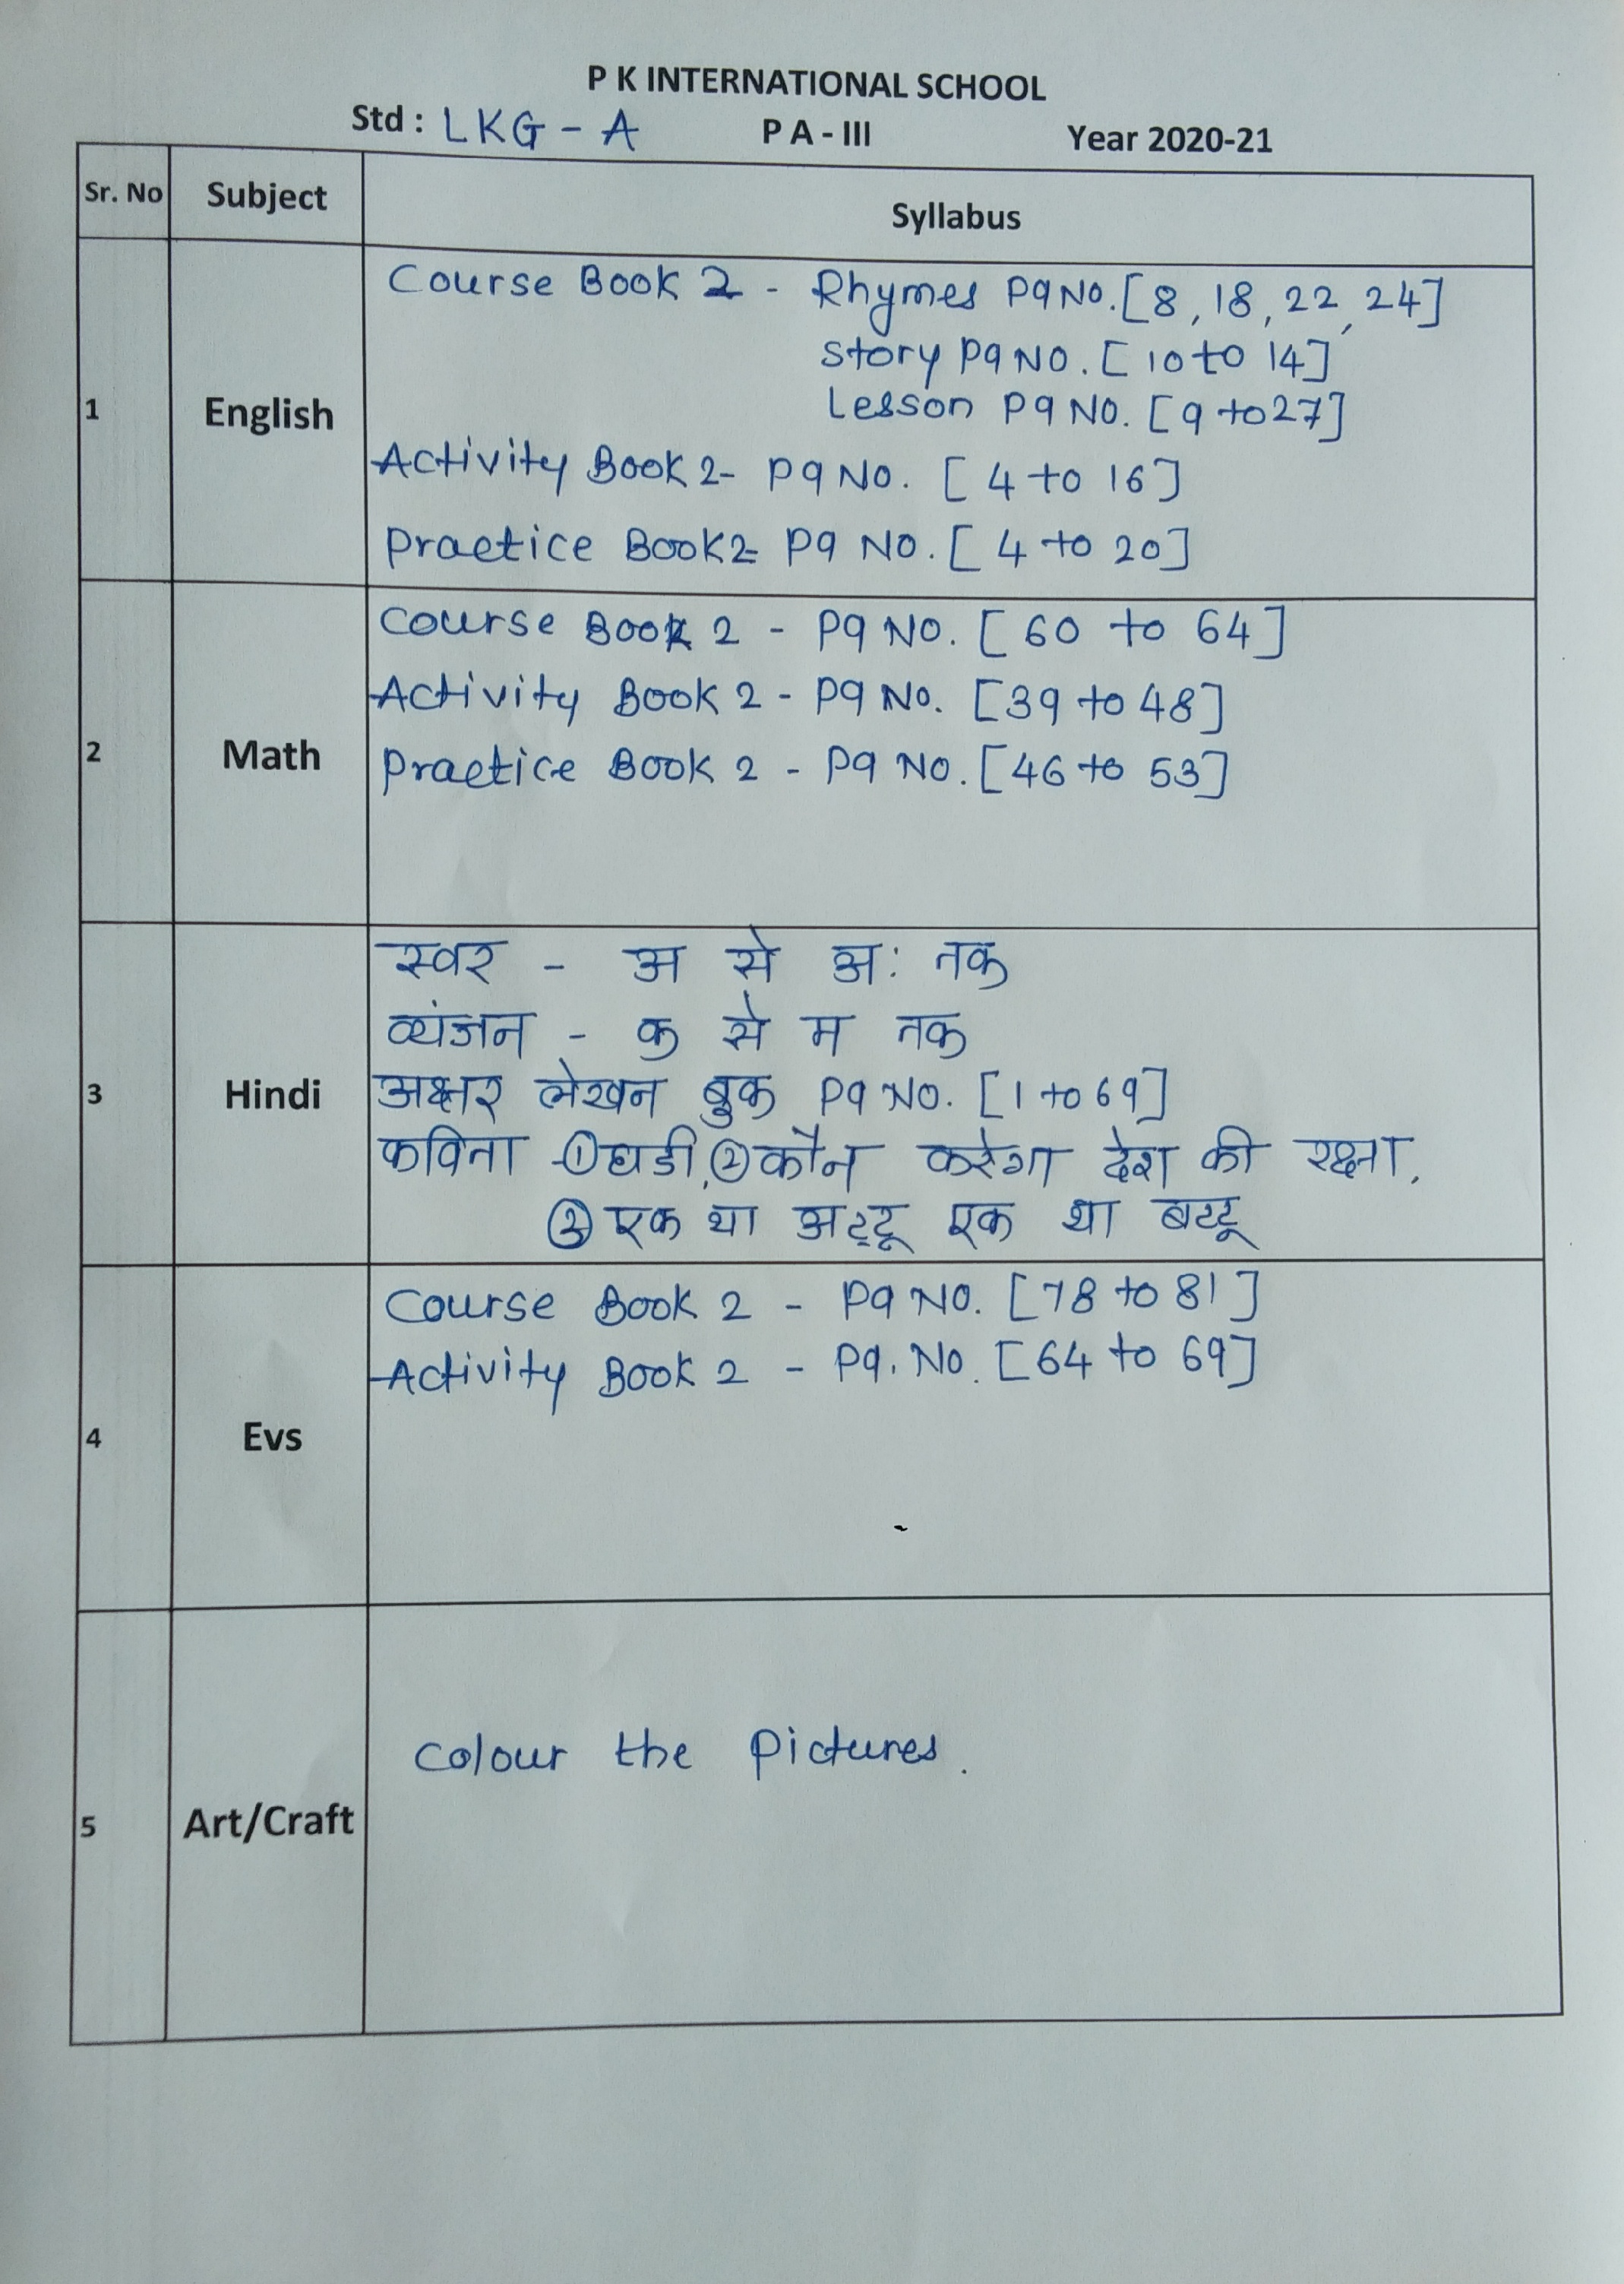 P K INTERNATIONAL SCHOOL
Std : LKG - A P A - III Year 2020-21
Sr. No Subject Syllabus
1 English
Course Book 2 - Rhymes Pg No. [8, 18, 22, 24]
Story Pg No. [10 to 14]
Lesson Pg No. [9 to 27]
Activity Book 2 - Pg No. [4 to 16]
Practice Book 2 - Pg No. [4 to 20]
2 Math
Course Book 2 - Pg No. [60 to 64]
Activity Book 2 - Pg No. [39 to 48]
Practice Book 2 - Pg No. [46 to 53]
3 Hindi
स्वर - अ से अः तक
व्यंजन - क से म तक
अक्षर लेखन बुक Pg No. [1 to 69]
कविता - ① घडी, ② कौन करेगा देश की रक्षा,
③ एक था अट्टू एक था बट्टू
4 Evs
Course Book 2 - Pg No. [78 to 81]
Activity Book 2 - Pg. No. [64 to 69]
5 Art/Craft
Colour the Pictures.